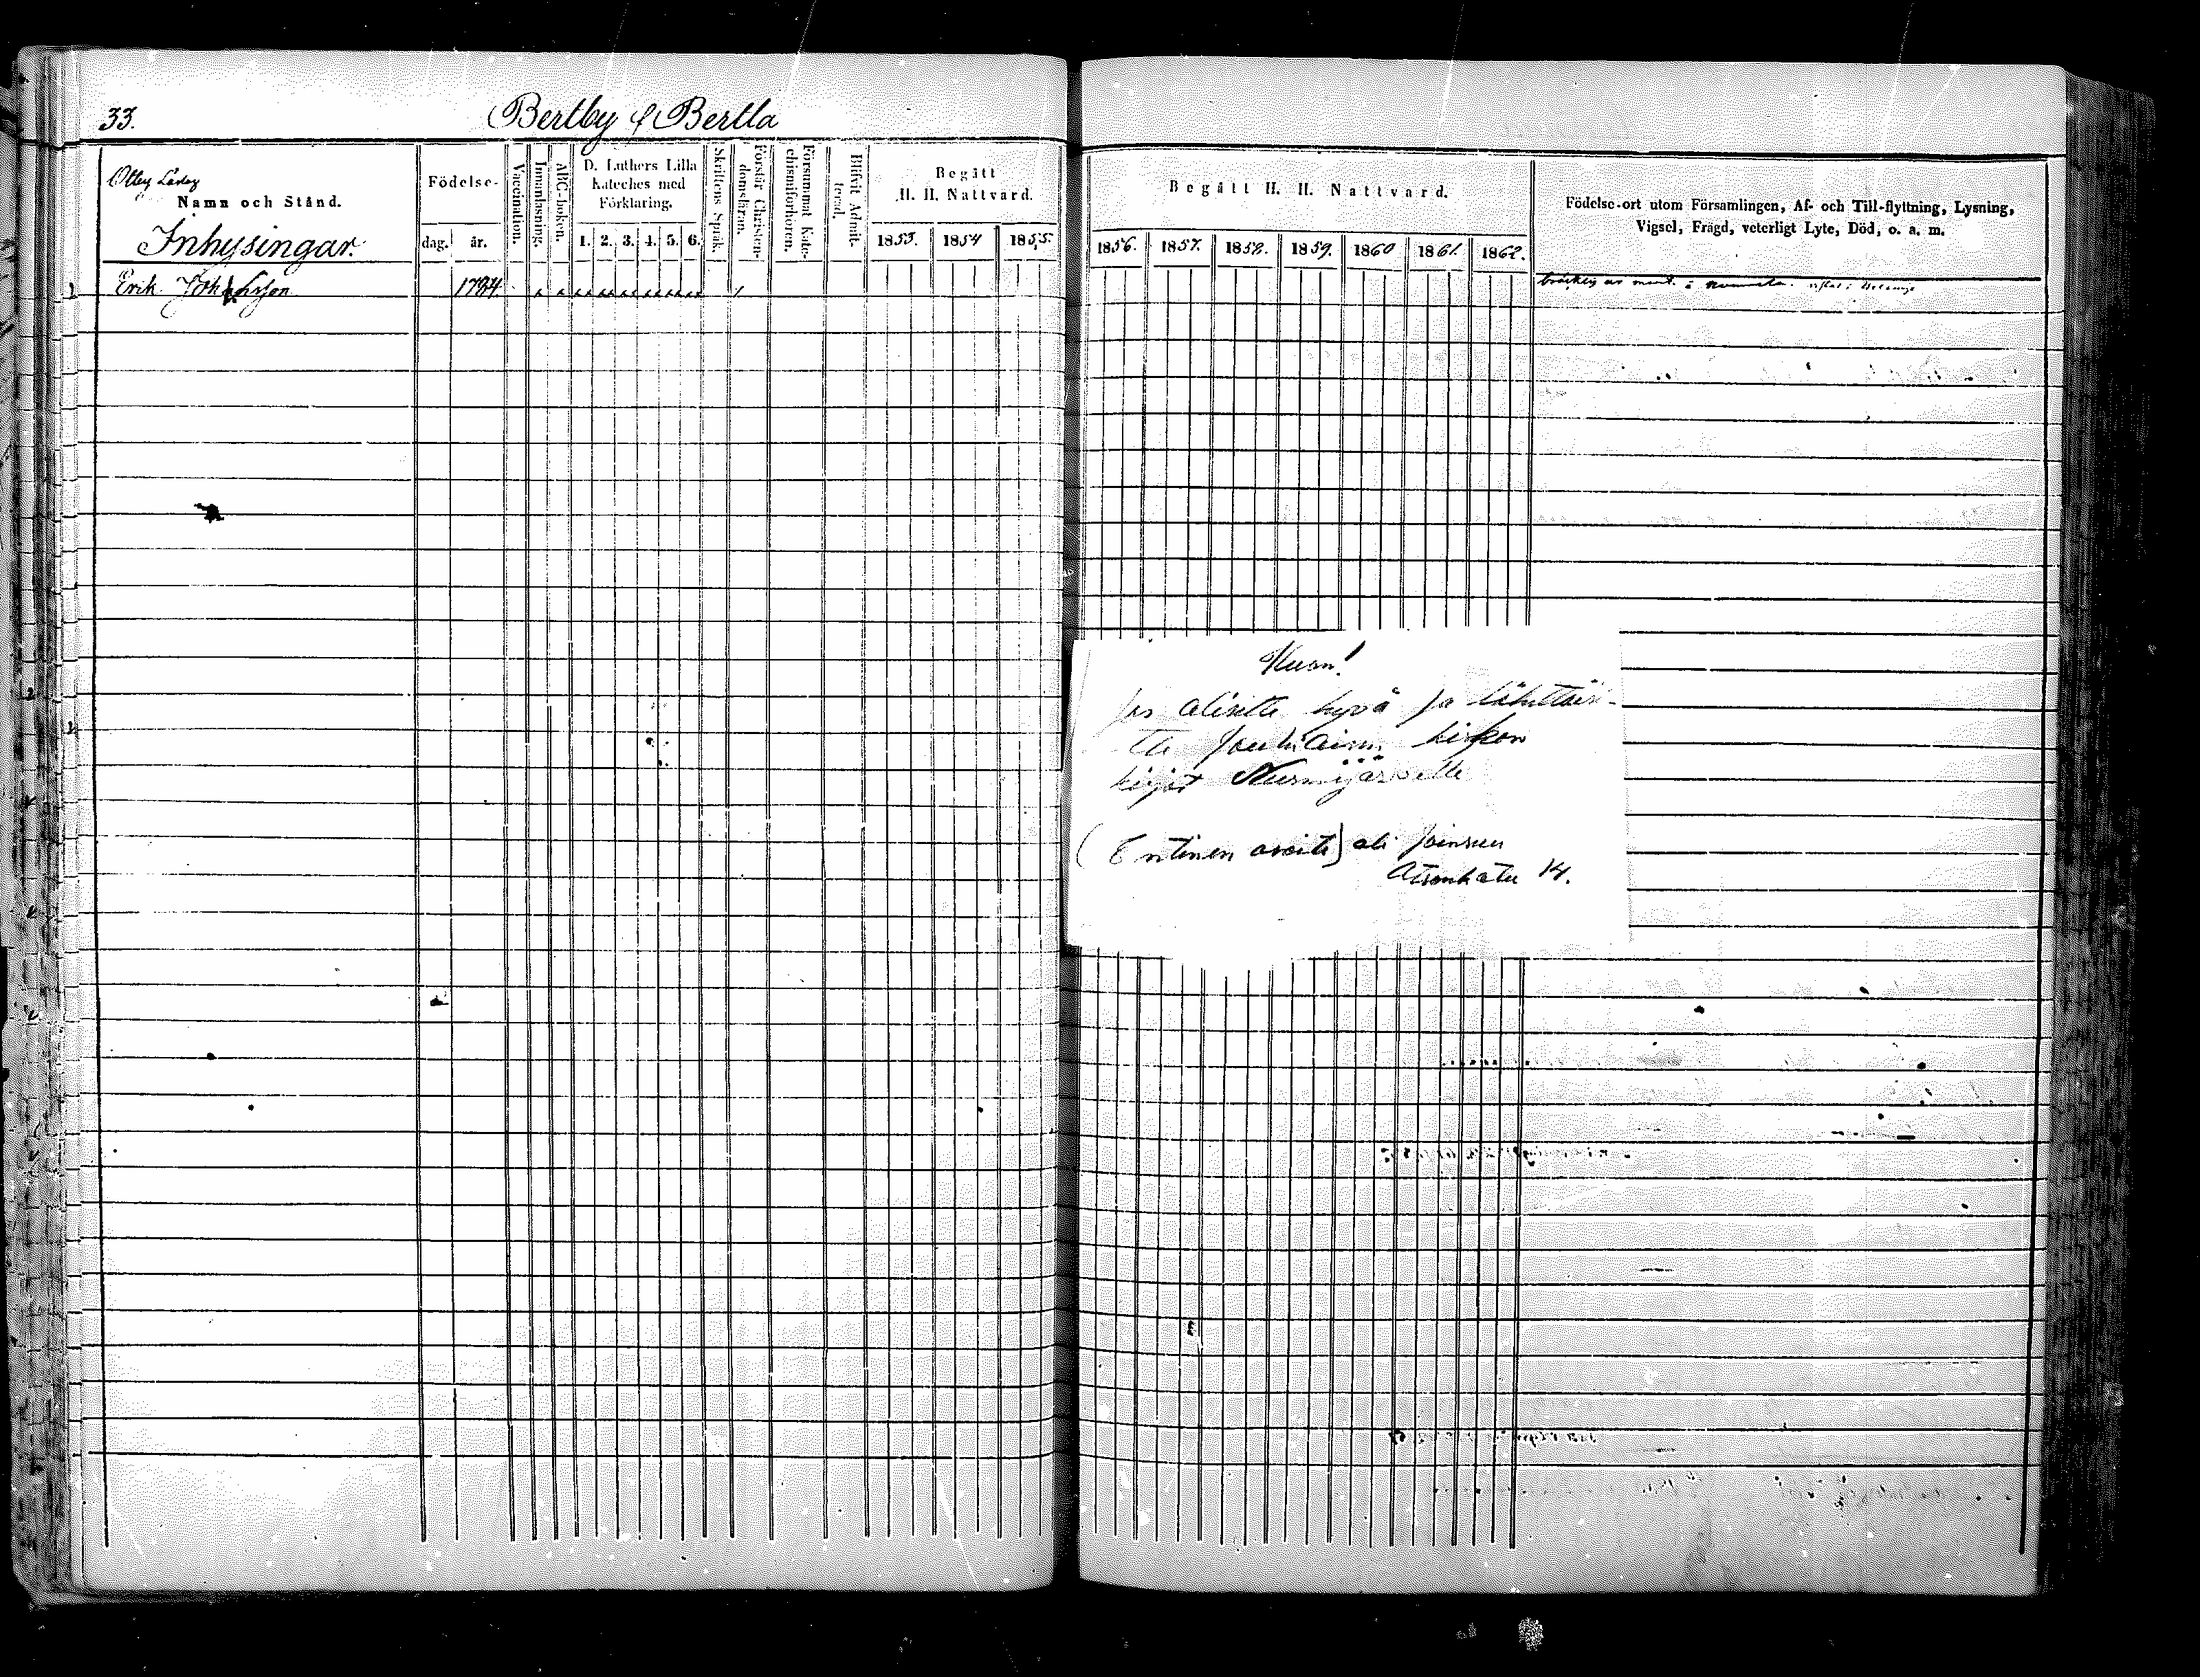 33.
Bertby & Bertla
Namn och Stånd.
Inhysingar.
Födelse-
dag. år.
Vaccination.
Innanläsning.
ABC-boken.
D. Luthers Lilla
Kateches med
Förklaring.
1. 2. 3. 4. 5. 6.
Skriftens Språk.
Förstår Christen-
domsläran.
Försummat Kate-
chismiförhören.
Blifvit Admit-
terad.
Begått
H. H. Nattvard.
1853. 1854 1855.
Erik 1784.
Begått H. H. Nattvard.
1856. 1857. 1858. 1859. 1860 1861. 1862.
Födelse-ort utom Församlingen, Af- och Till-flyttning, Lysning,
Vigsel, Frägd, veterligt Lyte, Död, o. a. m.
Jos olisitte hyvä ja lähettäisi-
tte kirkon
kirjat Nurmijärvelle
(Entinen osoite) oli
14.